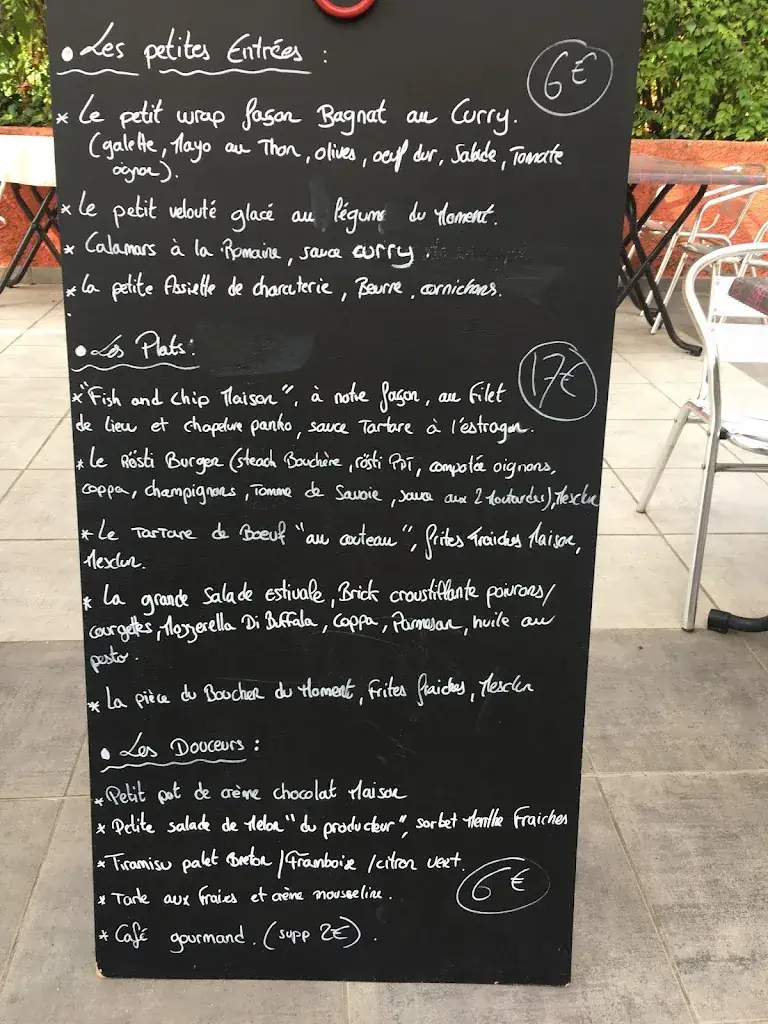 • Les petites Entrées :
6€
* Le petit wrap façon Bagnat au Curry.
(galette, Mayo au Thon, olives, oeuf dur, Salade, Tomate
oignon).
* Le petit velouté glacé au Légume du Moment.
* Calamars à la Romaine, sauce curry
* La petite Assiette de charcuterie, Beurre, cornichons.
• Les Plats :
17€
* "Fish and chip Maison", à notre façon, au Filet
de lieu et chapelure panko, sauce Tartare à l'estragon.
* Le Rösti Burger (steack Bouchère, rösti PDT, compotée oignons,
coppa, champignons, Tomme de Savoie, sauce aux 2 Moutardes), Mesclun
* Le Tartare de Boeuf "au couteau", frites Fraiches Maison,
Mesclun.
* La grande Salade estivale, Brick croustillante poivrons/
courgettes, Mozzerella Di Buffala, Coppa, Parmesan, huile au
pesto.
* La pièce du Boucher du Moment, Frites fraiches, Mesclun
• Les Douceurs :
* Petit pot de crème chocolat Maison
* Petite salade de Melon "du producteur", sorbet Menthe Fraiches
* Tiramisu palet Breton / Framboise / citron vert.
6€
* Tarte aux fraises et crème mousseline.
* Café gourmand. (supp 2€).